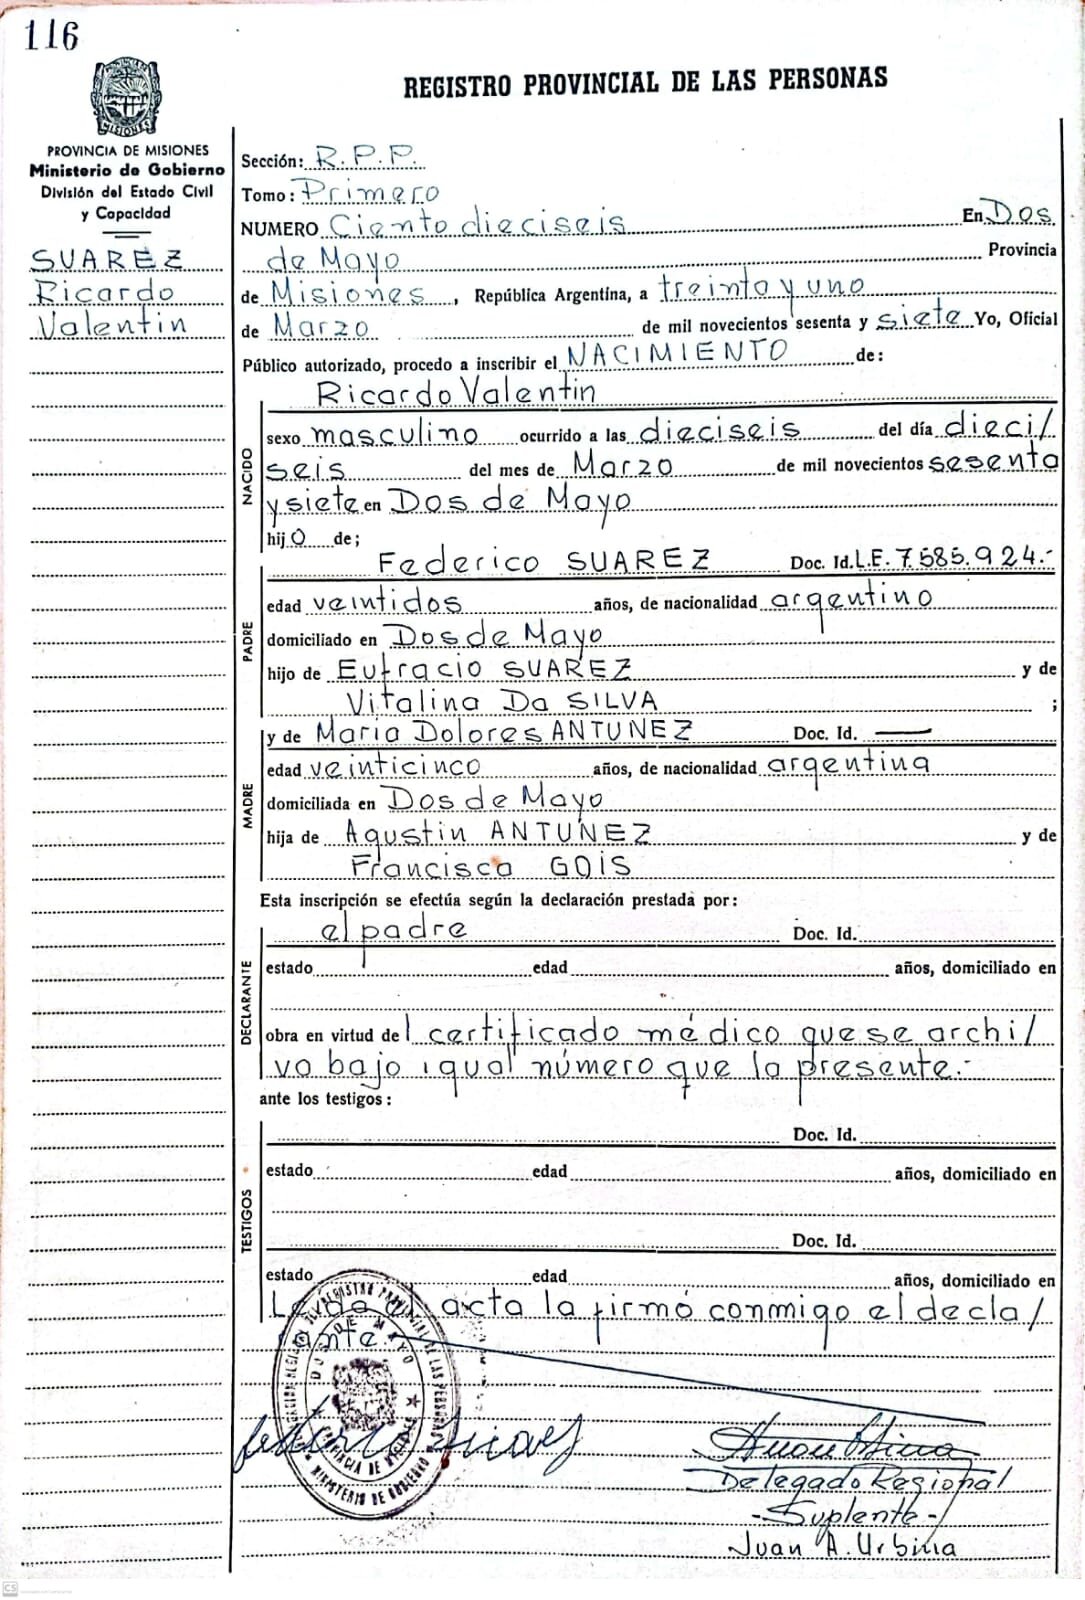 116
REGISTRO PROVINCIAL DE LAS PERSONAS
MISIONES
PROVINCIA DE MISIONES
Ministerio de Gobierno
División del Estado Civil
y Capacidad
SUAREZ
Ricardo
Valentin
Sección: R.P.P.
Tomo: Primero
NUMERO Ciento dieciseis En Dos
de Mayo Provincia
de Misiones, República Argentina, a treinta y uno
de Marzo de mil novecientos sesenta y siete Yo, Oficial
Público autorizado, procedo a inscribir el NACIMIENTO de:
Ricardo Valentin
NACIDO
sexo masculino ocurrido a las dieciseis del día dieci/
seis del mes de Marzo de mil novecientos sesenta
y siete en Dos de Mayo
hijo de;
Federico SUAREZ Doc. Id. L.E. 7.585.924.-
PADRE
edad veintidos años, de nacionalidad argentino
domiciliado en Dos de Mayo
hijo de Eufracio SUAREZ y de
Vitalina Da SILVA ;
y de Maria Dolores ANTUNEZ Doc. Id. —
MADRE
edad veinticinco años, de nacionalidad argentina
domiciliada en Dos de Mayo
hija de Agustin ANTUNEZ y de
Francisca GOIS
Esta inscripción se efectúa según la declaración prestada por:
el padre Doc. Id.
DECLARANTE
estado edad años, domiciliado en
obra en virtud del certificado médico que se archi/
va bajo igual número que la presente.-
ante los testigos:
Doc. Id.
TESTIGOS
estado edad años, domiciliado en
Doc. Id.
estado edad años, domiciliado en
Leída el acta la firmó conmigo el decla/
rante.
REGISTRO PROVINCIAL DE LAS PERSONAS
DOS DE MAYO
PROVINCIA DE MISIONES
MINISTERIO DE GOBIERNO
Delegado Regional
-Suplente-
Juan A. Urbina
CS